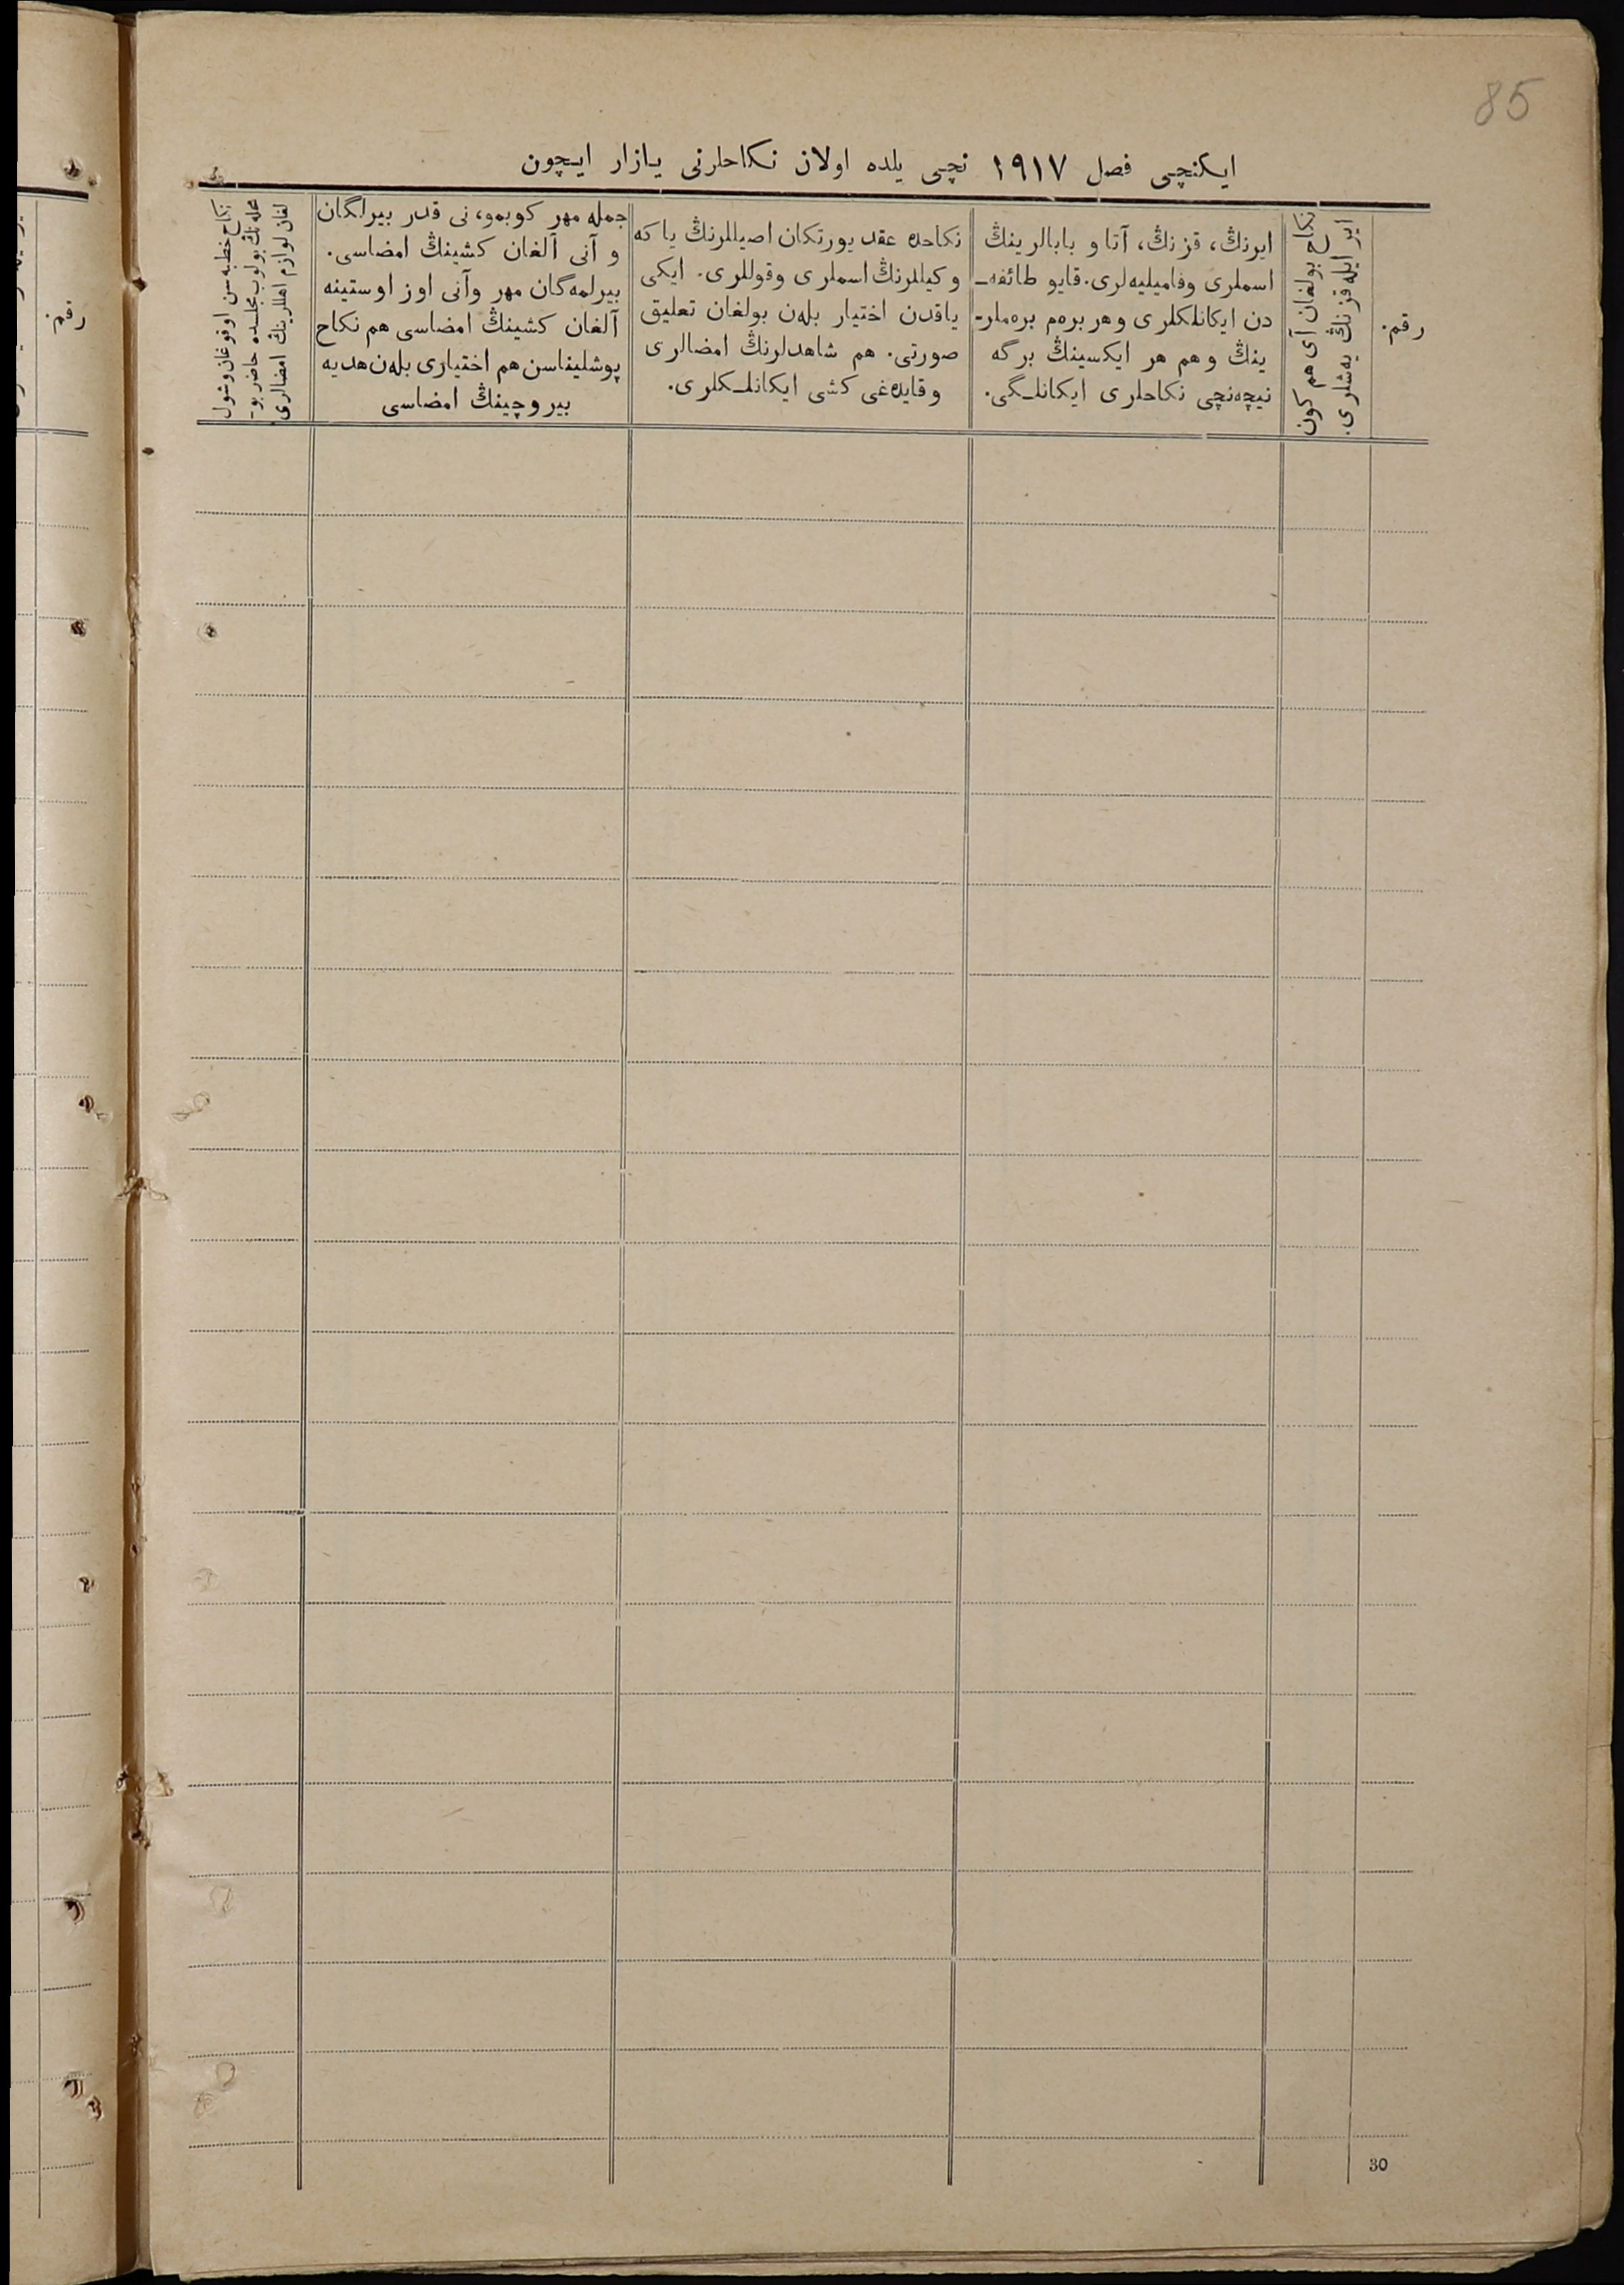 85
ایکنچی فصل ١٩١٧ نچی یلده اولان نکاحلرنی یازار ایچون
رقم.
ایر ایله قزنڭ یەشلری.
نکاح بولغان آی هم کون
ایرنڭ، قزنڭ، آتا و بابالرینڭ
اسملری وفامیلیەلری. قایو طائفه‌ـ
دن ایکانلکلری وهر برەم برەملر-
ینڭ وهم هر ایکسینڭ برگه
نیچەنچی نکاحلری ایکانلـگی.
نکاحده عقد یورتکان اصیللرنڭ یا که
وکیللرنڭ اسملری وقوللری. ایکی
یاقدن اختیار بلەن بولغان تعلیق
صورتی. هم شاهدلرنڭ امضالری
وقایدەغی کشی ایکانلـکلری.
جمله مهر کوبمو، نی قدر بیرلگان
و آنی آلغان کشینڭ امضاسی.
بیرلمەگان مهر وآنی اوز اوستینه
آلغان کشینڭ امضاسی هم نکاح
پوشلیناسن هم اختیاری بلەن هدیه
بیروچینڭ امضاسی
نکاح خطبه سن اوقوغان وشول
محله نڭ بولوب مجلسده حاضر بو-
لغان لوازم اهللرینڭ امضالری
رقم.
30